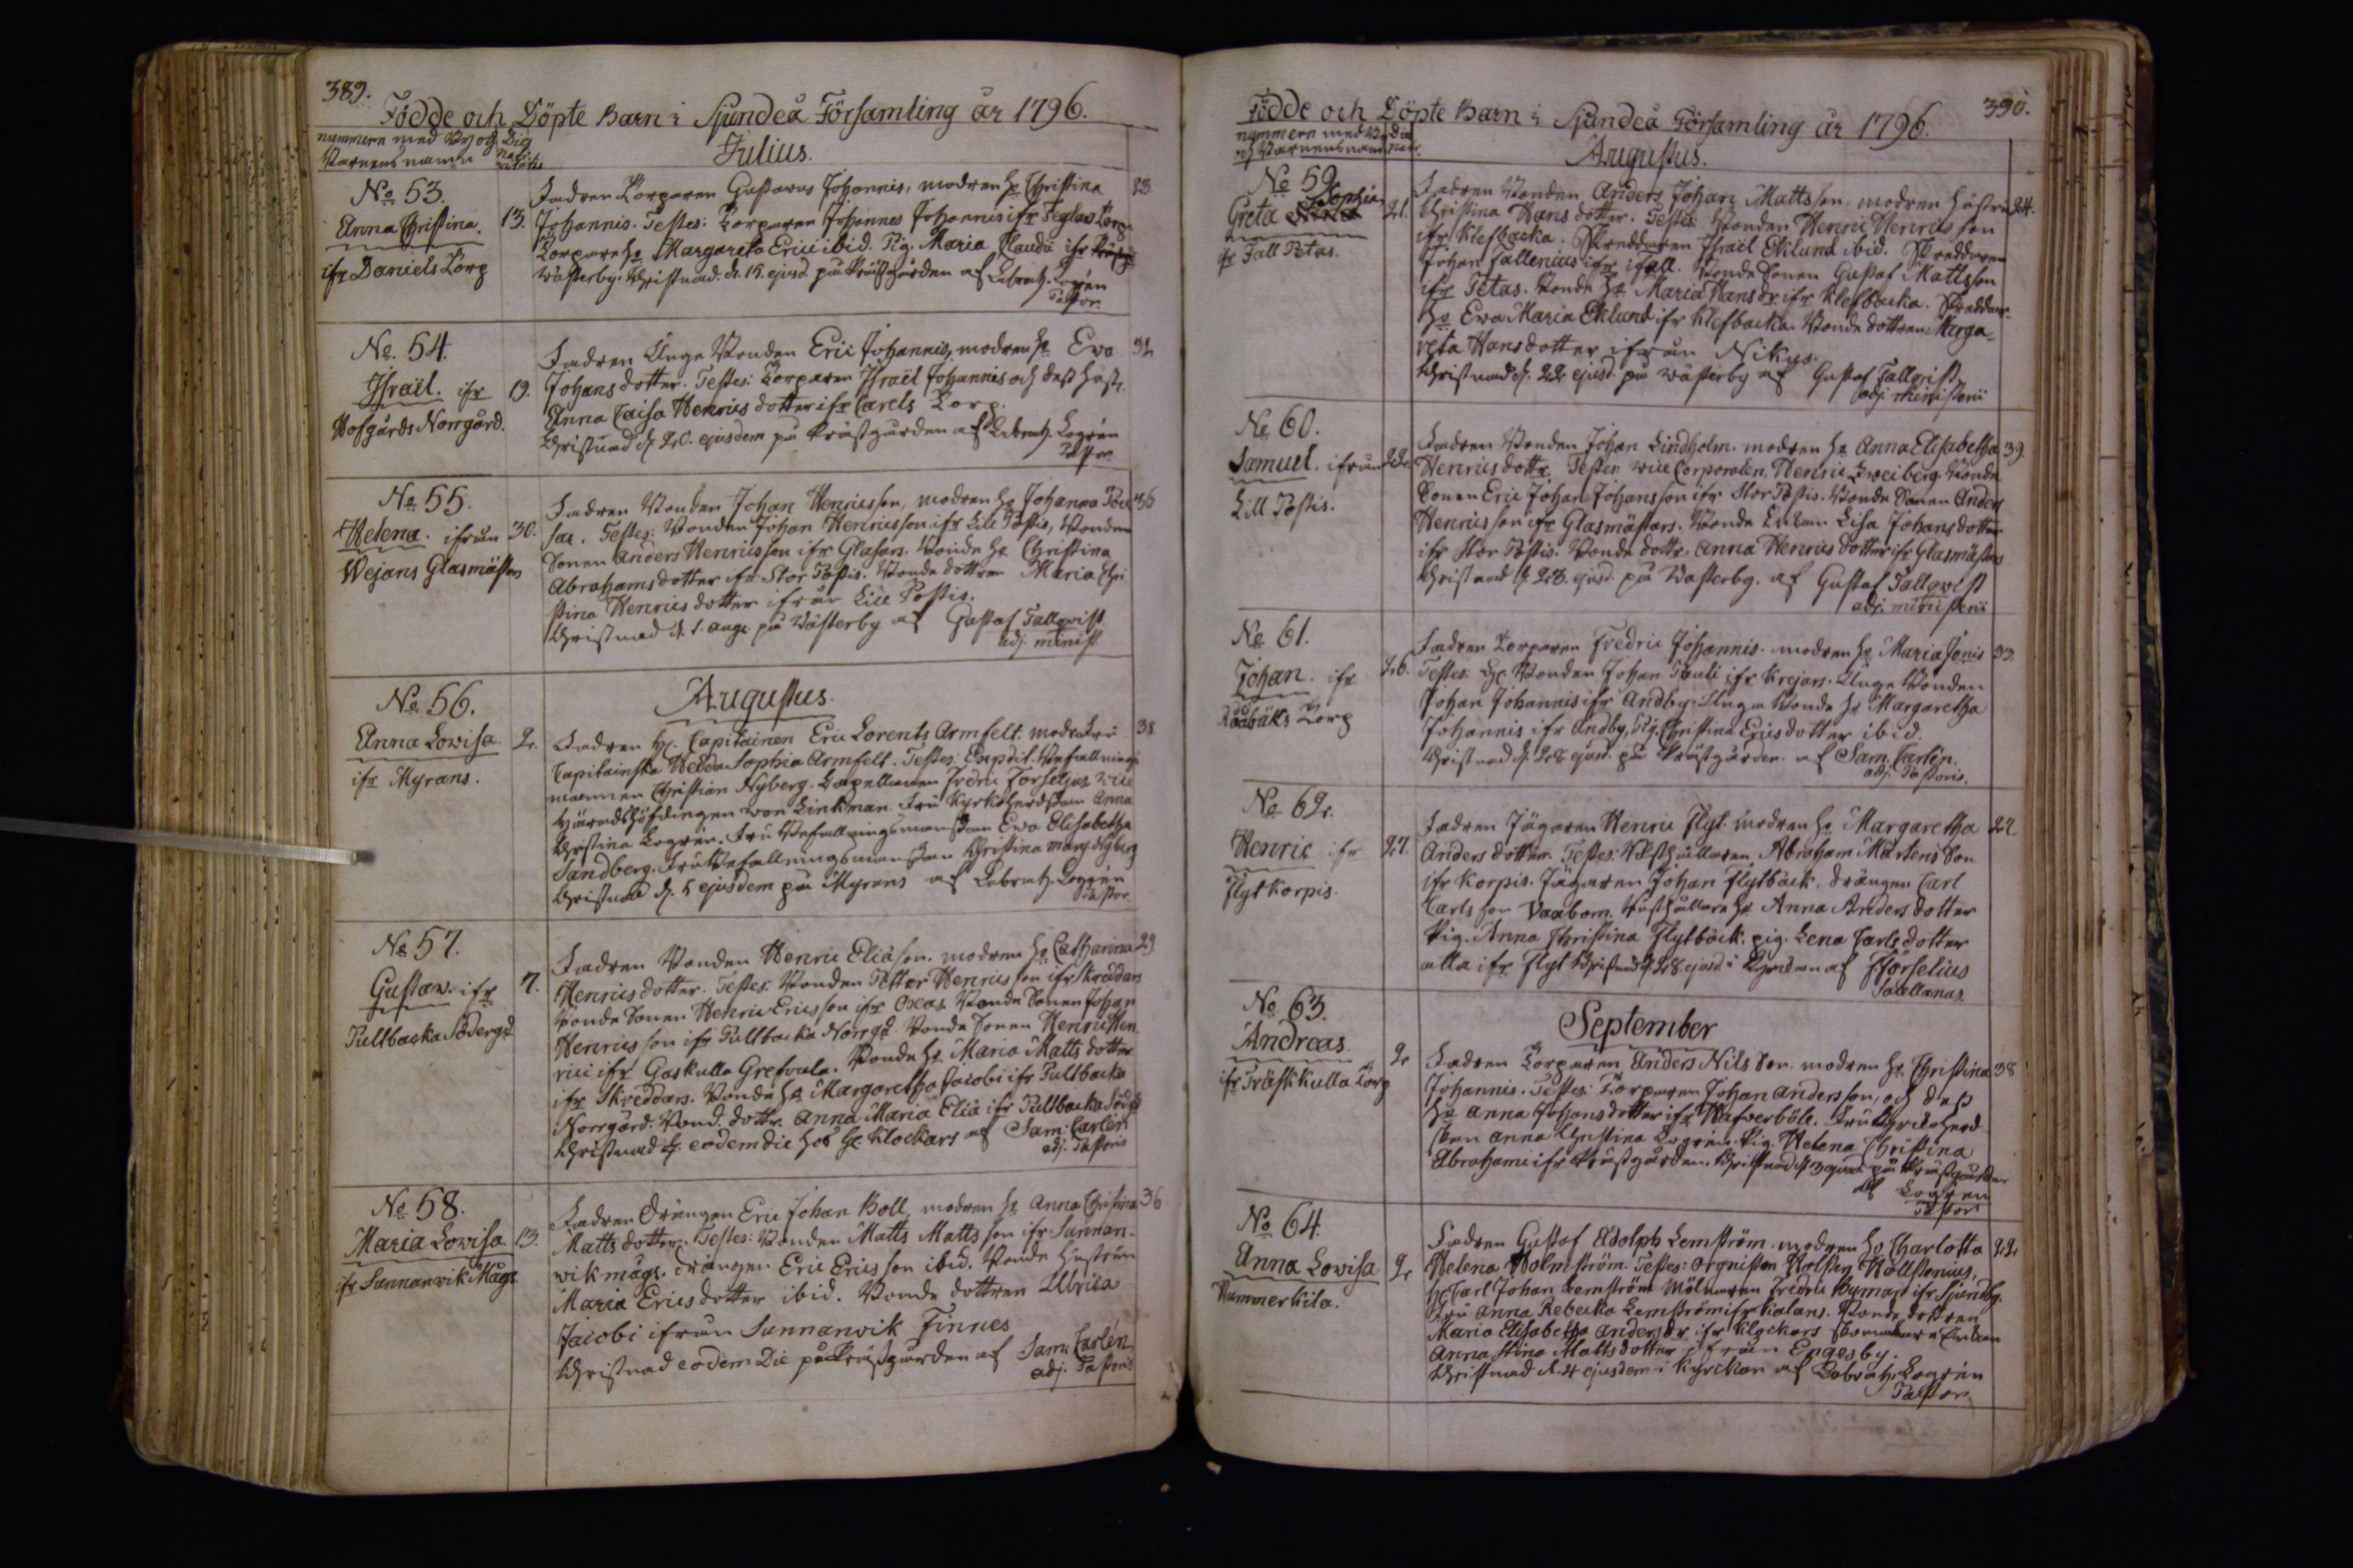 389.
Födde och Döpte Barn i Sjundeå Församling år 1796.
nummern med By och Dies
Barnens namn nati-
vitatis
Julius.
No 53.
Anna Christina. 13.
ifr Daniels Torp
Fadren Torparen Gustavus Johannis, modren h. Christina 23
Johannis. Testes: Torparen Johannes Johannis ifr Teglas Torp
Torpare h. Margareta Erici ibid. Pig. Maria Claudii ifr
Wästerby. Christnad. d. 15. ejusd. på Prästgården af Lebrecht. Logrén
Pastor.
No. 54.
Israël. ifr 19.
Hofgårds Norrgård.
Fadren Unge Bonden Eric Johannis, modren h. Eva 32
Johansdotter. Testes: Torparen Israël Johannis och dess hust.
Anna Caisa Henricsdotter ifr Carels Torp.
Christnad d. 20. ejusdem på Prästgården af Lebrecht. Logrén
Pastor.
No 55.
Helena. ifrån 30.
Wejans Glasmästars
Fadren Bonden Johan Henricsson, modren h. Johanna 36
Testes: Bonden Johan Henricsson ifr Lill Påstis, Bonden
Sonen Anders Henricsson ifr Glasars. Bonde h. Christina
Abrahamsdotter ifr Stor Påstis. Bonde dottren Maria Chri
stina Henricsdotter ifrån Lill Påstis.
Christnad d. 1. aug. på Wästerby af Gustaf Tallqvist
adj. minist
Augustus.
No. 56.
Anna Lovisa. 2.
ifr Myrans.
Fadren H. Capitainen Eric Lorents Armfelt. modr. Fru 38
Capitainska Hedda Sophia Armfelt. Testes: Exped. Befallnings
mannen Christian Nyberg. Capellanen Fredric Forselius vice
Häradshöfdingen von Linkman. Fru Kyrkoherdskan Anna
Christina Logrén. Fru Befallningsmanskan Eva Elisabetha
Sandberg. Fru Befallningsmanskan Christina Marg. Nyberg
Christnad d. 5 ejusdem på Myrans af Lebrecht. Logrén
Pastor.
No 57.
Gustav. ifr 7.
Pultbacka Södergd
Fadren Bonden Henric Eliason. modren h. Catharina 29
Henricsdotter. Testes: Bonden Petter Henricsson ifr Skreddars
Bonde Sonen Henric Ericsson ifr Oxas. Bonde Sonen Johan
Henricsson ifr Pultbacka Norrgd. Bonde Sonen Henric Hen
rici ifr Gaskulla Grefvala. Bonde h. Maria Mattsdotter
ifr Skreddars. Bonde h. Margaretha Jacobi ifr Pultbacka
Norrgård. Bond. dottr. Anna Maria Elia ifr Pultbacka Södgd
Christnad d. eodem die hos H. Klockars af Sam: Carlén
adj. Pastoris
No 58.
Maria Lovisa. 13.
ifr Sunnanvik Mågs
Fadren Drängen Eric Johan Boll, modren h. Anna Christina 36
Mattsdotter. Testes: Bonden Matts Mattsson ifr Sunnan-
vik mågs. Drängen Eric Ericsson ibid. Bonde hustrun
Maria Ericsdotter ibid. Bonde dottren Ulrica
Jacobi ifrån Sunnanvik Finnes
Christnad eodem Die på Prästgården af Sam: Carlén
adj. Pastoris
390.
Födde och Döpte Barn i Sjundeå Församling år 1796.
nummern med By Dies
och Barnens namn nat.
Augustus.
No 59.
Sophia
Greta 21.
ifr Fall Petas.
Fadren Bonden Anders Johan Mattsson, modren hustru 24.
Christina Hansdotter. Testes: Bonden Henric Henricsson
ifr Klefbacka. Skreddaren Israël Eklund ibid. Skreddaren
Johan Fallenius ifr ifall. Bonde Sonen Gustaf Mattsson
ifr Petas. Bonde h. Maria Hansdr ifr Klefbacka. Skreddar-
h. Eva Maria Eklund ifr Klefbacka. Bonde dottren Marga-
reta Hansdotter ifrån Nikus.
Christnad d. 22 ejusd. på Wästerby af Gustaf Tallqvist
adj. ministerii
No 60.
Samuel. ifrån 22.
Lill Påstis.
Fadren Bonden Johan Lindholm. modren h. Anna Elisabetha 39
Henricsdottr. Testes: vice Corporalen. Henric Zweiberg. Bonde
Sonen Eric Johan Johansson ifr Stor Påstis. Bonde Sonen Anders
Henricsson ifr Glasmästars. Bonde Enkan Lisa Johansdotter
ifr Stor Påstis. Bonde dottr. Anna Henricsdotter ifr Glasmästars
Christnad d. 23. ejusd. på Wästerby. af Gustaf Tallqvist
adj. ministerii
No 61.
Johan. ifr 26.
Råbäks Torp
Fadren Torparen Fredric Johannis. modren h. Maria Jonis 33.
Testes: H. Bonden Johan Pauli ifr Krejars. Unge Bonden
Johan Johannis ifr Andby. Unga Bonde h. Margaretha
Johannis ifr Andby, Pig. Christina Ericsdotter ibid.
Christnad d. 28 ejusd. på Prästgården. af Sam. Carlén.
adj. Pastoris.
No 62.
Henric ifr 27.
Flyt Korpis.
Fadren Jägaren Henric Flyt. modren h. Margaretha 27.
Andersdotter. Testes: Rusthållaren Abraham Mårtens Son
ifr Korpis. Jägaren Johan Flytbäck, Drängen Carl
Carlsson Vaxbom. Rusthållare h. Anna Andersdotter
Pig. Anna Christina Flytbäck. pig. Lena Carlsdotter
alla ifr Flyt Christnad d. 28. ejusd. i Kyrckan af F Forselius
Sacellanus.
September
No 63.
Andreas. 2
ifr Träskkulla Torp
Fadren Torparen Anders Nilsson. modren h. Christina 38
Johannis. Testes: Torparen Johan Andersson, och dess
h. Anna Johansdotter ifr Hafverböle. Fru Kyrkoherd-
skan Anna Christina Logren. Pig. Helena Christina
Abrahami ifr Prästgården. Christnad d. 3 ejusd. på Prästgården
af Logren
Pastor
No 64.
Anna Lovisa 2
Kummerkila.
Fadren Gustaf Adolph Lemström. modren h. Charlotta 22
Helena Holmström. Testes: Orgnisten Kristen Hällstenius,
H. Carl Johan Lemström Mölnaren Fredric Nyman ifr Sjundby.
Fru Anna Rebecka Lemström ifr Kalans. Bonde dottren
Maria Elisabetha Andersdr. ifr Klockars Enkan
Anna Stina Mattsdotter ifrån Engesby.
Christnad d. 4 ejusdem i Kyrckan af Lebrecht. Logrén
Pastor